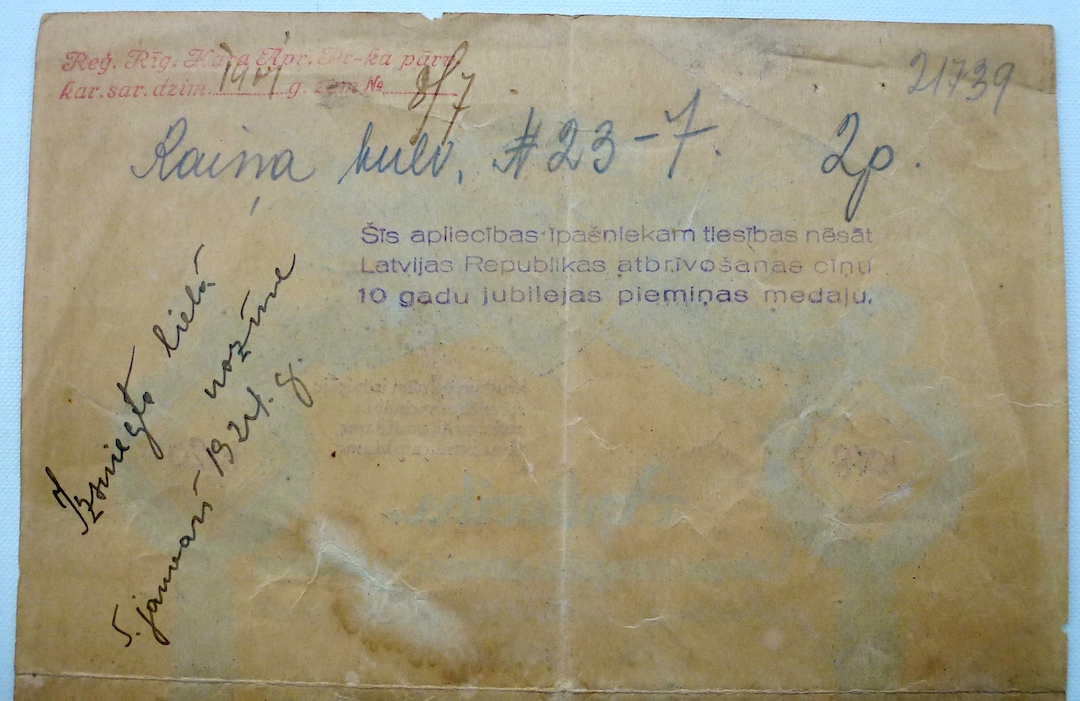 Reg. Rīg. Kara Apr. Pr-ka pārv.
kar. sar. dzim. 1901 g. zem №
21739
Raiņa bulv. # 23-7. 2p.
Šīs apliecības īpašniekam tiesības nēsāt
Latvijas Republikas atbrīvošanas cīņu
10 gadu jubilejas piemiņas medaļu.
Izsniegta lielā
nozīme
5. janvarī 1924. g.